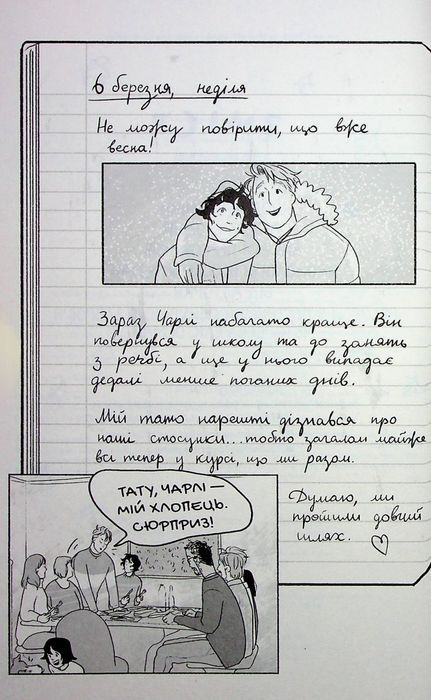 6 березня, неділя
Не можу повірити, що вже
весна!
Зараз Чарлі набагато краще. Він
повернувся у школу та до занять
з регбі, а ще у нього випадає
дедалі менше поганих днів.
Мій тато нарешті дізнався про
наші стосунки... тобто загалом майже
всі тепер у курсі, що ми разом.
ТАТУ, ЧАРЛІ —
МІЙ ХЛОПЕЦЬ.
СЮРПРИЗ!
Думаю, ми
пройшли довгий
шлях.